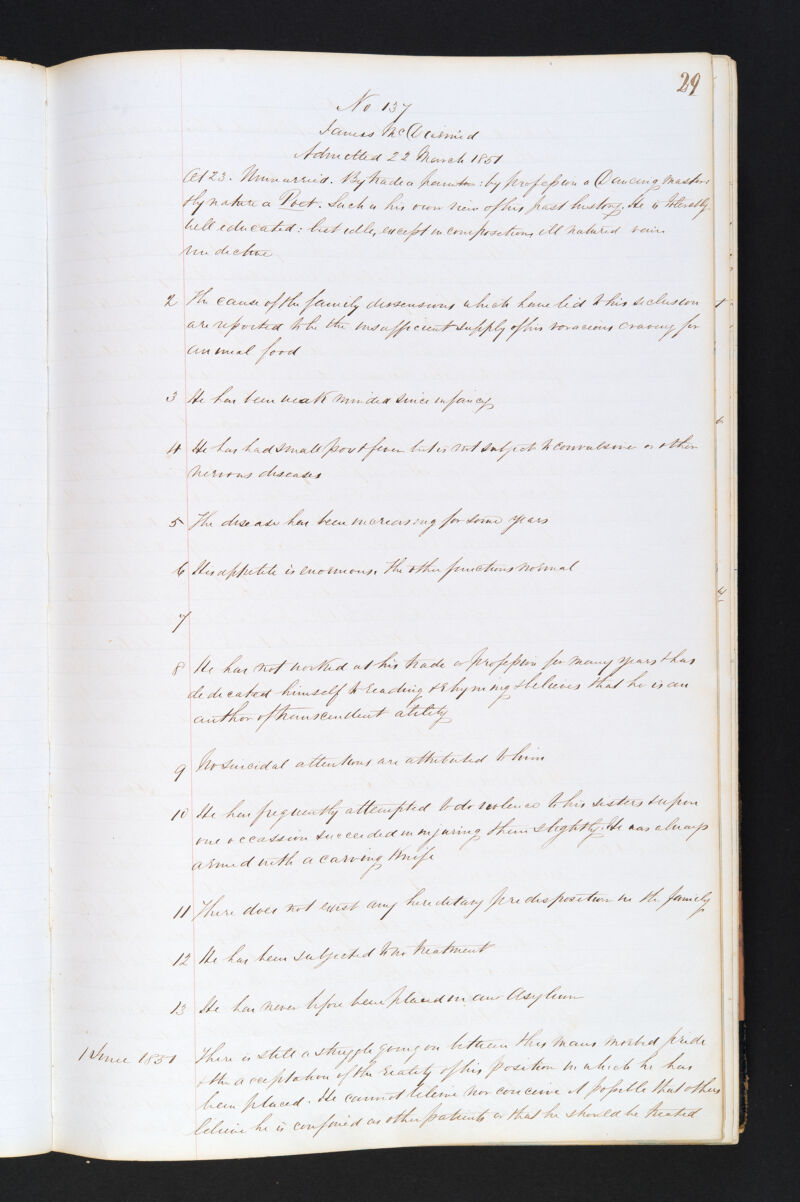 29
No 137
James McDiarmid
Admitted 22 March 1851
Æt 23. Unmarried. By trade a painter: by profession a Dancing master:
& by nature a Poet. Such is his own view of his past history. He is literally
well educated: but idle, except in composition, ill natured vain
vindictive
2 The cause of the family dissensions which have led to his seclusion
are reported to be the insufficient supply of his voracious craving for
animal food
3 He has been weak minded since infancy
4 He has had small pox & fever but is not subject to convulsive or other
nervous diseases
5 The disease has been increasing for some years
6 His appetite is enormous. The other functions normal
7
8 He has not worked at his trade or profession for many years & has
dedicated himself to reading & rhyming & believes that he is an
author of transcendent ability
9 No suicidal attentions are attributed to him
10 He has frequently attempted to do violence to his sisters & upon
one occassion succeeded in injuring them slightly. He was always
armed with a carving knife
11 There does not exist any hereditary predisposition in the family
12 He has been subjected to no treatment
13 He has never before been placed in an Asylum
1 June 1851 There is still a struggle going on between this mans morbid pride
& the acceptation of the reality of his position in which he has
been placed. He cannot believe nor conceive it possible that others
believe he is confined as other patients or that he should be treated